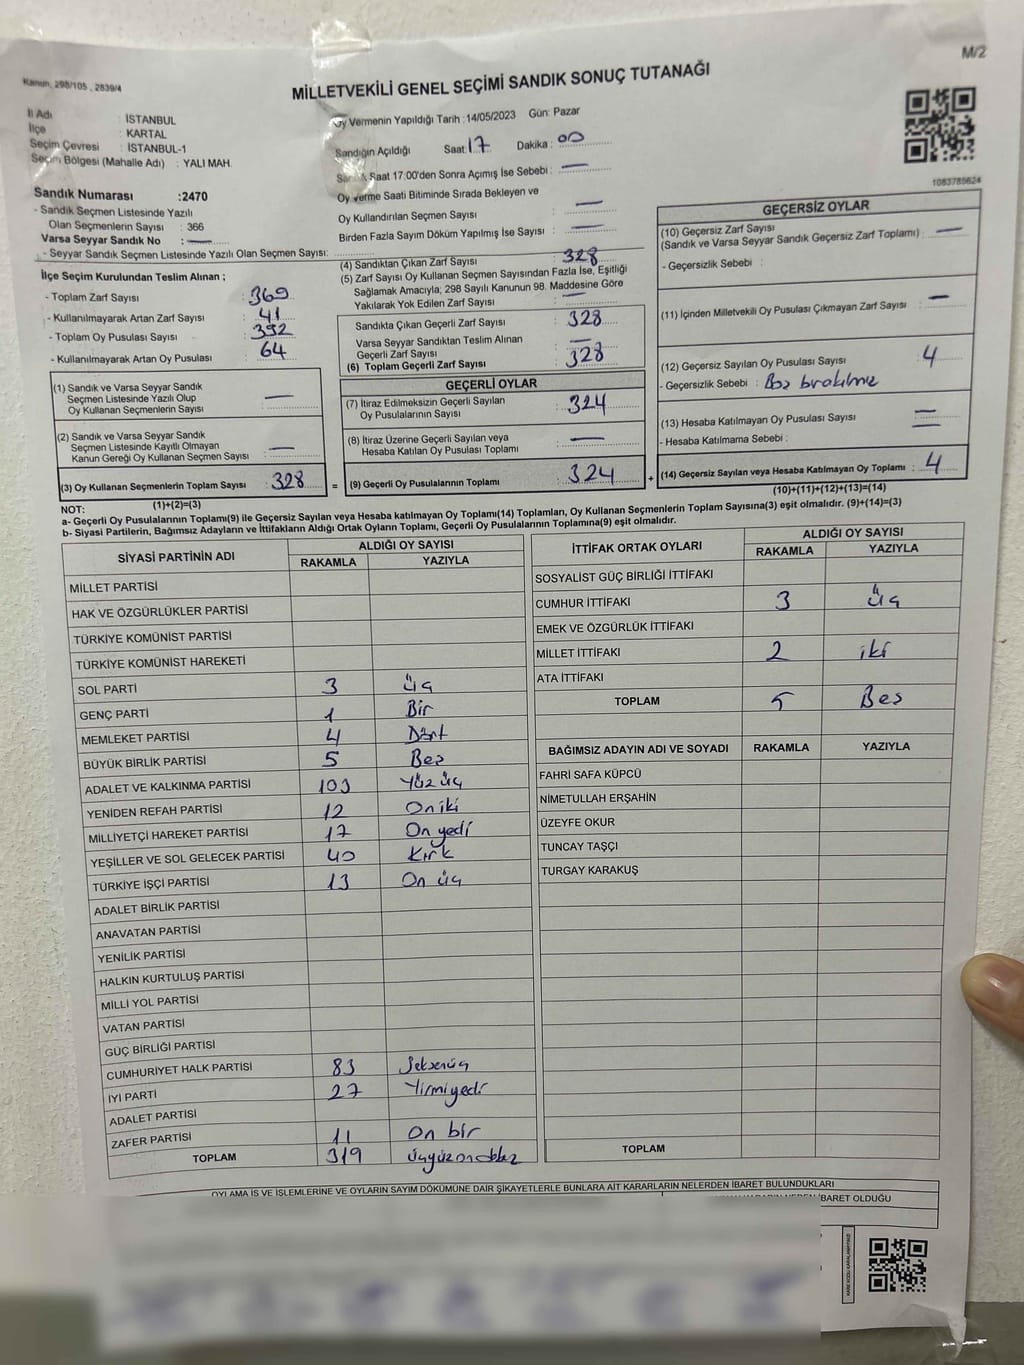 M/2
Kanun, 298/105 , 2839/4
MİLLETVEKİLİ GENEL SEÇİMİ SANDIK SONUÇ TUTANAĞI
İl Adı : İSTANBUL
İlçe : KARTAL
Seçim Çevresi : İSTANBUL-1
Seçim Bölgesi (Mahalle Adı) : YALI MAH.
Sandık Numarası :2470
- Sandık Seçmen Listesinde Yazılı
Olan Seçmenlerin Sayısı : 366
Varsa Seyyar Sandık No : —
- Seyyar Sandık Seçmen Listesinde Yazılı Olan Seçmen Sayısı:
İlçe Seçim Kurulundan Teslim Alınan ;
- Toplam Zarf Sayısı : 369
- Kullanılmayarak Artan Zarf Sayısı : 41
- Toplam Oy Pusulası Sayısı : 392
- Kullanılmayarak Artan Oy Pusulası : 64
(1) Sandık ve Varsa Seyyar Sandık
Seçmen Listesinde Yazılı Olup : —
Oy Kullanan Seçmenlerin Sayısı
(2) Sandık ve Varsa Seyyar Sandık
Seçmen Listesinde Kayıtlı Olmayan : —
Kanun Gereği Oy Kullanan Seçmen Sayısı
(3) Oy Kullanan Seçmenlerin Toplam Sayısı : 328
(1)+(2)=(3)
Oy Vermenin Yapıldığı Tarih :14/05/2023 Gün: Pazar
Sandığın Açıldığı Saat: 17 Dakika : 00
Saat 17:00'den Sonra Açımış İse Sebebi : —
Oy Verme Saati Bitiminde Sırada Bekleyen ve
Oy Kullandırılan Seçmen Sayısı : —
Birden Fazla Sayım Döküm Yapılmış İse Sayısı : —
(4) Sandıktan Çıkan Zarf Sayısı : 328
(5) Zarf Sayısı Oy Kullanan Seçmen Sayısından Fazla İse, Eşitliği
Sağlamak Amacıyla; 298 Sayılı Kanunun 98. Maddesine Göre
Yakılarak Yok Edilen Zarf Sayısı : —
Sandıkta Çıkan Geçerli Zarf Sayısı : 328
Varsa Seyyar Sandıktan Teslim Alınan
Geçerli Zarf Sayısı : —
(6) Toplam Geçerli Zarf Sayısı : 328
GEÇERLİ OYLAR
(7) İtiraz Edilmeksizin Geçerli Sayılan
Oy Pusulalarının Sayısı : 324
(8) İtiraz Üzerine Geçerli Sayılan veya
Hesaba Katılan Oy Pusulası Toplamı : —
= (9) Geçerli Oy Pusulalarının Toplamı : 324 +
1083785624
GEÇERSİZ OYLAR
(10) Geçersiz Zarf Sayısı
(Sandık ve Varsa Seyyar Sandık Geçersiz Zarf Toplamı) : —
- Geçersizlik Sebebi :
(11) İçinden Milletvekili Oy Pusulası Çıkmayan Zarf Sayısı : —
(12) Geçersiz Sayılan Oy Pusulası Sayısı : 4
- Geçersizlik Sebebi : Boş bırakılmış
(13) Hesaba Katılmayan Oy Pusulası Sayısı : —
- Hesaba Katılmama Sebebi :
(14) Geçersiz Sayılan veya Hesaba Katılmayan Oy Toplamı : 4
(10)+(11)+(12)+(13)=(14)
NOT:
a- Geçerli Oy Pusulalarının Toplamı(9) ile Geçersiz Sayılan veya Hesaba katılmayan Oy Toplamı(14) Toplamları, Oy Kullanan Seçmenlerin Toplam Sayısına(3) eşit olmalıdır. (9)+(14)=(3)
b- Siyasi Partilerin, Bağımsız Adayların ve İttifakların Aldığı Ortak Oyların Toplamı, Geçerli Oy Pusulalarının Toplamına(9) eşit olmalıdır.
SİYASİ PARTİNİN ADI ALDIĞI OY SAYISI
RAKAMLA YAZIYLA
MİLLET PARTİSİ
HAK VE ÖZGÜRLÜKLER PARTİSİ
TÜRKİYE KOMÜNİST PARTİSİ
TÜRKİYE KOMÜNİST HAREKETİ
SOL PARTİ 3 üç
GENÇ PARTİ 1 Bir
MEMLEKET PARTİSİ 4 Dört
BÜYÜK BİRLİK PARTİSİ 5 Beş
ADALET VE KALKINMA PARTİSİ 103 Yüz üç
YENİDEN REFAH PARTİSİ 12 On iki
MİLLİYETÇİ HAREKET PARTİSİ 17 On yedi
YEŞİLLER VE SOL GELECEK PARTİSİ 40 Kırk
TÜRKİYE İŞÇİ PARTİSİ 13 On üç
ADALET BİRLİK PARTİSİ
ANAVATAN PARTİSİ
YENİLİK PARTİSİ
HALKIN KURTULUŞ PARTİSİ
MİLLİ YOL PARTİSİ
VATAN PARTİSİ
GÜÇ BİRLİĞİ PARTİSİ
CUMHURİYET HALK PARTİSİ 83 Seksenüç
İYİ PARTİ 27 Yirmiyedi
ADALET PARTİSİ
ZAFER PARTİSİ 11 On bir
TOPLAM 319 üçyüzondokuz
İTTİFAK ORTAK OYLARI ALDIĞI OY SAYISI
RAKAMLA YAZIYLA
SOSYALİST GÜÇ BİRLİĞİ İTTİFAKI
CUMHUR İTTİFAKI 3 üç
EMEK VE ÖZGÜRLÜK İTTİFAKI
MİLLET İTTİFAKI 2 iki
ATA İTTİFAKI
TOPLAM 5 Beş
BAĞIMSIZ ADAYIN ADI VE SOYADI RAKAMLA YAZIYLA
FAHRİ SAFA KÜPCÜ
NİMETULLAH ERŞAHİN
ÜZEYFE OKUR
TUNCAY TAŞÇI
TURGAY KARAKUŞ
TOPLAM
OYLAMA İŞ VE İŞLEMLERİNE VE OYLARIN SAYIM DÖKÜMÜNE DAİR ŞİKAYETLERLE BUNLARA AİT KARARLARIN NELERDEN İBARET BULUNDUKLARI
İBARET OLDUĞU